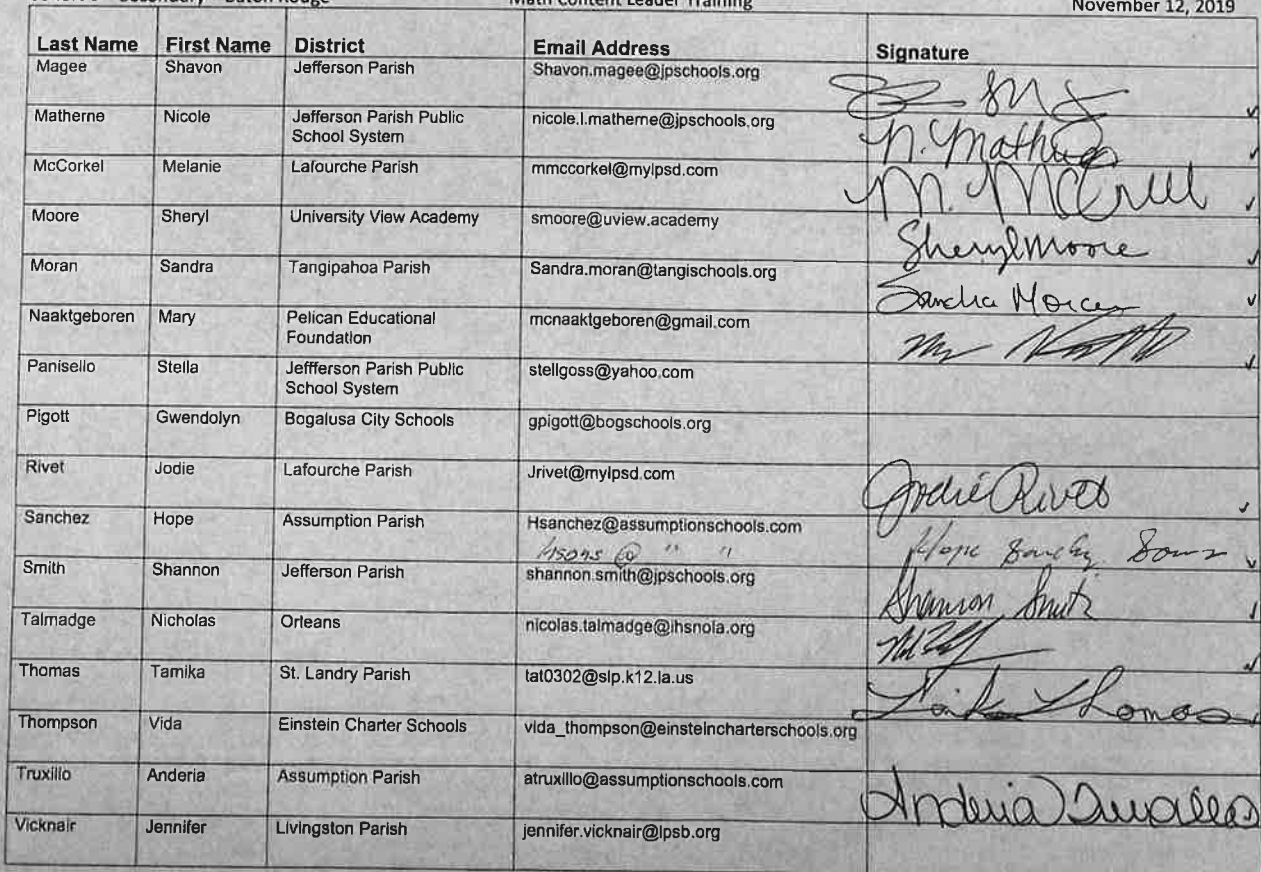 Math Content Leader Training
November 12, 2019
Last Name First Name District Email Address Signature
Magee Shavon Jefferson Parish Shavon.magee@jpschools.org
Matherne Nicole Jefferson Parish Public nicole.l.matherne@jpschools.org N. Matherne
School System
McCorkel Melanie Lafourche Parish mmccorkel@mylpsd.com M. McCrul
Moore Sheryl University View Academy smoore@uview.academy Sheryl Moore
Moran Sandra Tangipahoa Parish Sandra.moran@tangischools.org Sandra Moran
Naaktgeboren Mary Pelican Educational mcnaaktgeboren@gmail.com
Foundation
Panisello Stella Jeffferson Parish Public stellgoss@yahoo.com
School System
Pigott Gwendolyn Bogalusa City Schools gpigott@bogschools.org
Rivet Jodie Lafourche Parish Jrivet@mylpsd.com Jodie Rivet
Sanchez Hope Assumption Parish Hsanchez@assumptionschools.com Hope Sanchez
@ " "
Smith Shannon Jefferson Parish shannon.smith@jpschools.org Shannon Smith
Talmadge Nicholas Orleans nicolas.talmadge@ihsnola.org
Thomas Tamika St. Landry Parish tat0302@slp.k12.la.us Tamika Thomas
Thompson Vida Einstein Charter Schools vida_thompson@einsteincharterschools.org
Truxillo Anderia Assumption Parish atruxillo@assumptionschools.com Anderia Truxillo
Vicknair Jennifer Livingston Parish jennifer.vicknair@lpsb.org